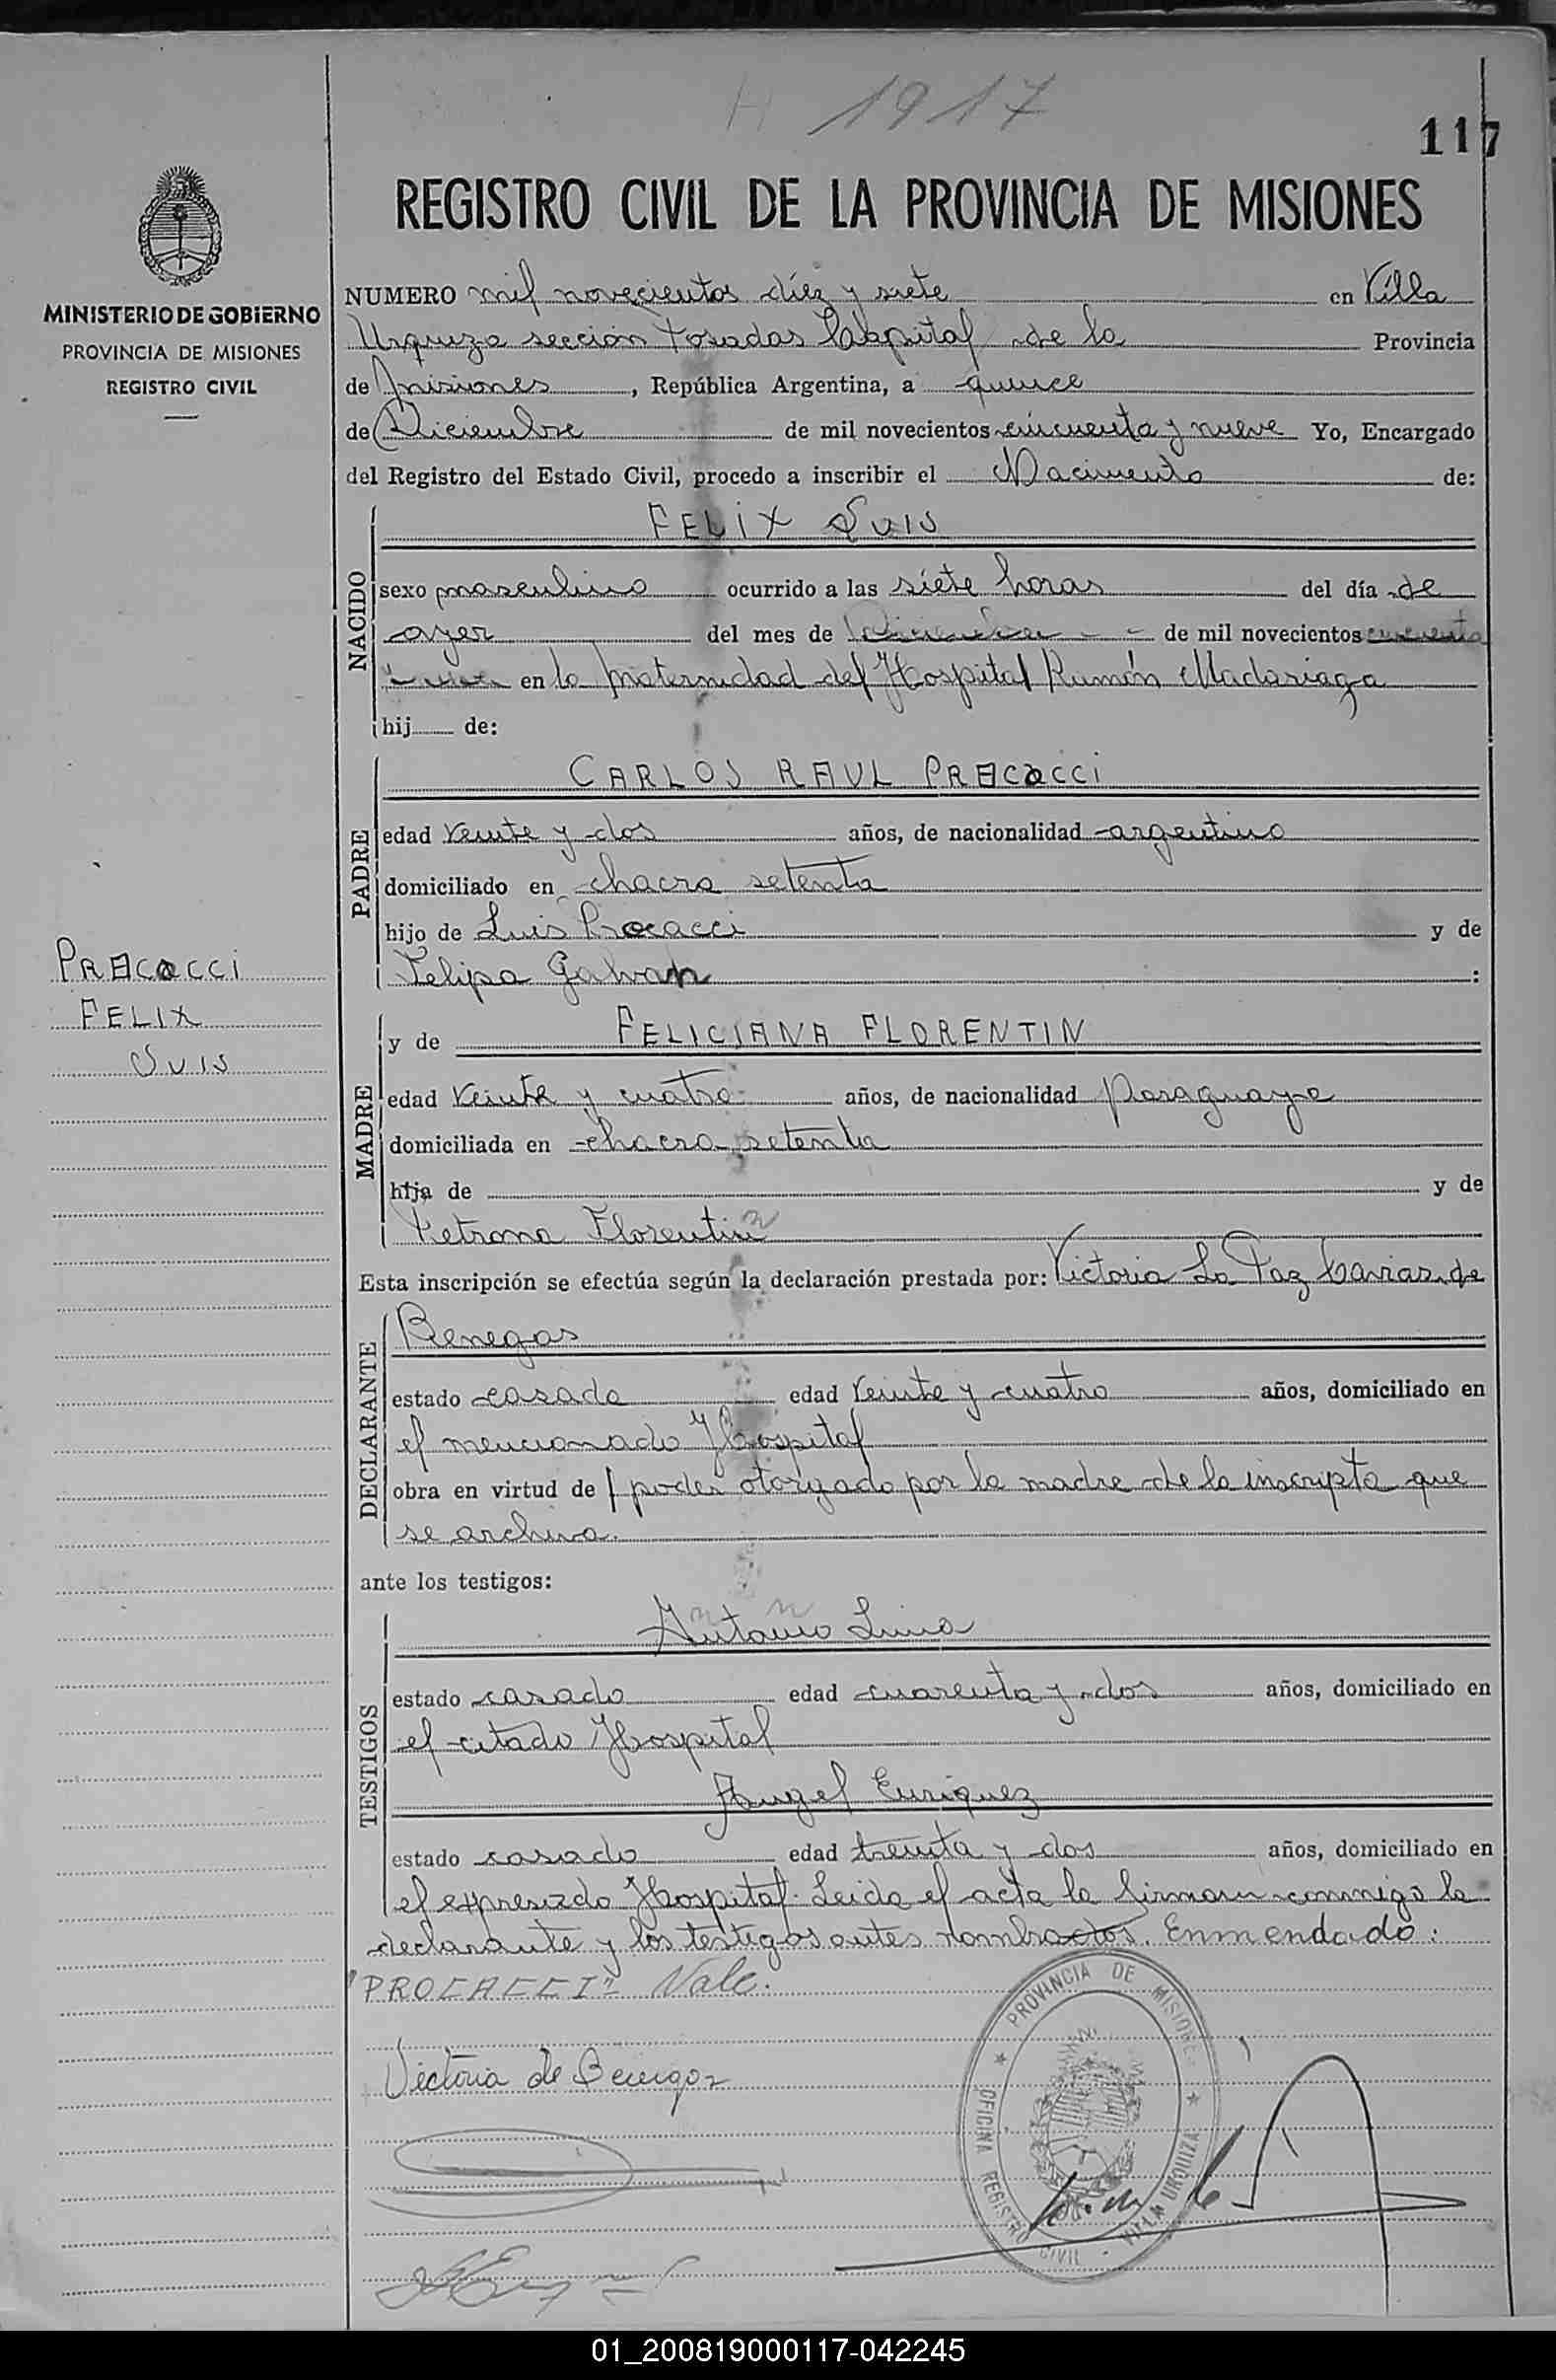 H 1917
117
REGISTRO CIVIL DE LA PROVINCIA DE MISIONES
MINISTERIO DE GOBIERNO
PROVINCIA DE MISIONES
REGISTRO CIVIL
NUMERO mil novecientos diez y siete en Villa
Urquiza sección Posadas Capital de la Provincia
de Misiones, República Argentina, a quince
de Diciembre de mil novecientos cincuenta y nueve Yo, Encargado
del Registro del Estado Civil, procedo a inscribir el Nacimiento de:
NACIDO
FELIX LUIS
sexo masculino ocurrido a las siete horas del día de
ayer del mes de de mil novecientos
en la Maternidad del Hospital Ramón Madariaga
hij de:
PADRE
CARLOS RAUL PROCACCI
edad veinte y dos años, de nacionalidad argentino
domiciliado en chacra setenta
hijo de Luis Procacci y de
Felipa Galvan :
PROCACCI
FELIX
LUIS
MADRE
y de FELICIANA FLORENTIN
edad veinte y cuatro años, de nacionalidad Paraguaya
domiciliada en chacra setenta
hija de y de
Petrona Florentin
Esta inscripción se efectúa según la declaración prestada por: Victoria La Paz de
DECLARANTE
Benegas
estado casada edad veinte y cuatro años, domiciliado en
el mencionado Hospital
obra en virtud de poder otorgado por la madre de la inscripta que
se archiva.
ante los testigos:
TESTIGOS
Antonio Lima
estado casado edad cuarenta y dos años, domiciliado en
el citado Hospital
Angel Enriquez
estado casado edad treinta y dos años, domiciliado en
el expresado Hospital. Leida el acta la firman conmigo la
declarante y los testigos antes nombrados. Enmendado:
"PROCACCI" Vale.
Victoria de Benegas
PROVINCIA DE MISIONES
OFICINA REGISTRO CIVIL - VILLA URQUIZA
01_200819000117-042245